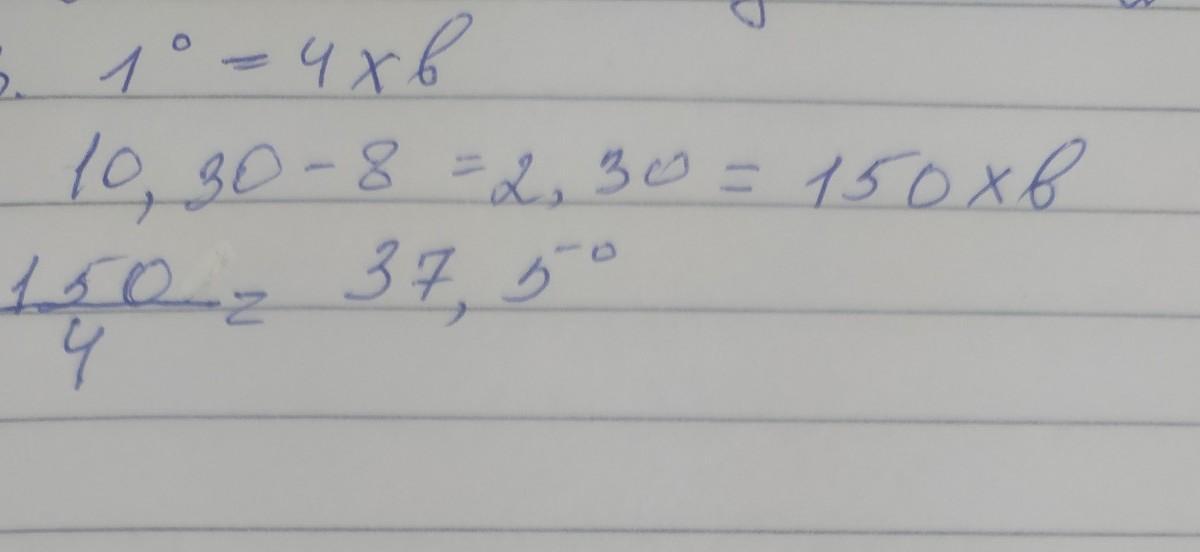 1° = 4 хв
10,30 - 8 = 2,30 = 150 хв
150/4 = 37,5°